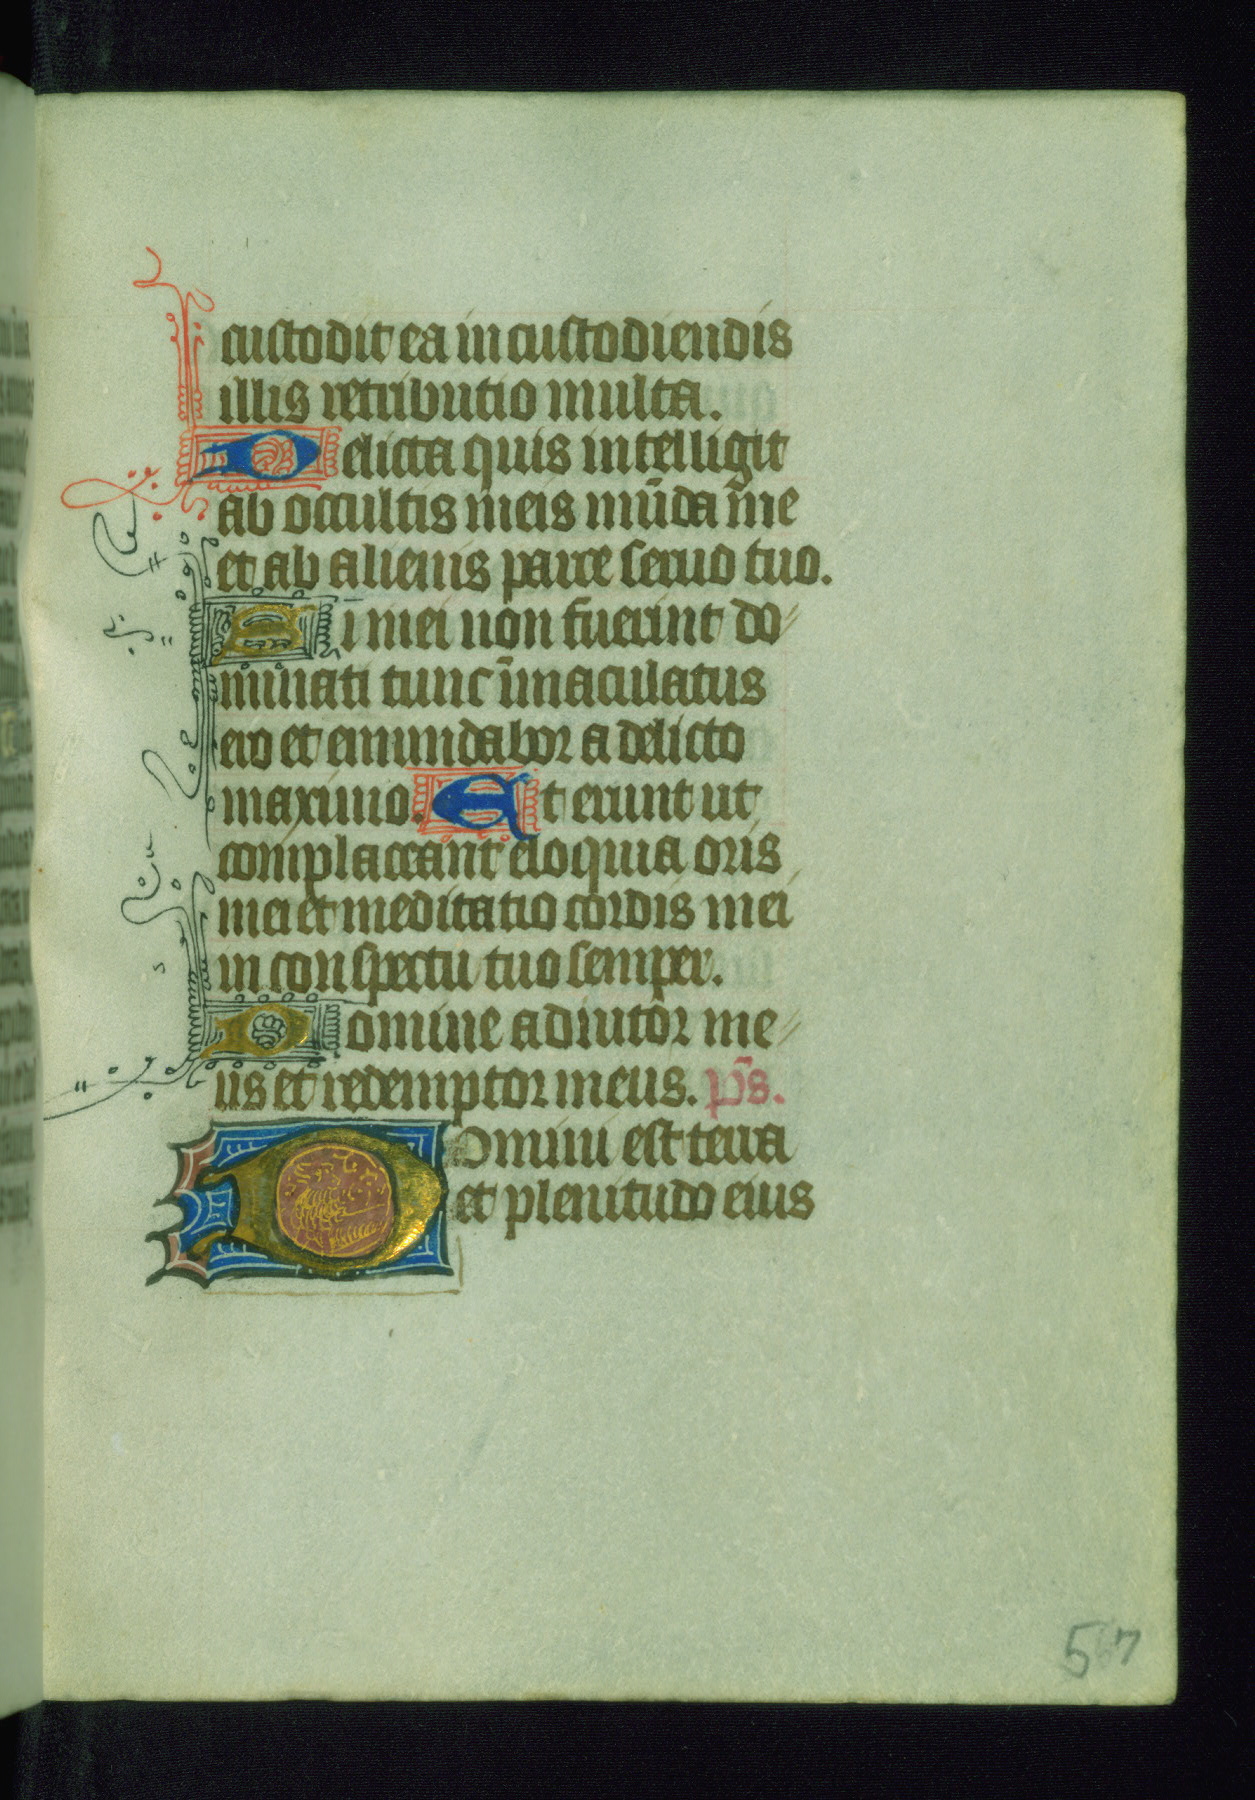 custodit ea in custodiendis
illis retributio multa.
Delicta quis intelligit
ab occultis meis mūda me
et ab alienis parce seruo tuo.
Si mei non fuerint do
minati tunc īmaculatus
ero et emundabor a delicto
maximo. Et erunt ut
complaceant eloquia oris
mei et meditatio cordis mei
in conspectu tuo semper.
Domine adiutor me
us et redemptor meus. p̄s.
Domini est terra
et plenitudo eius
567